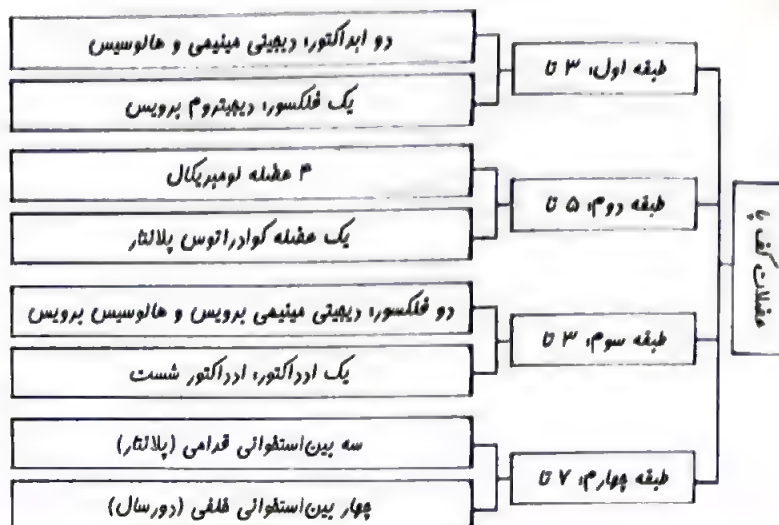 عضلات کف پا
طبقه اول: ۳ تا
دو ابداکتور: دیجیتی مینیمی و هالوسیس
یک فلکسور: دیجیتروم برویس
طبقه دوم: ۵ تا
۴ عضله لومبریکال
یک عضله کوادراتوس پلانتار
طبقه سوم: ۳ تا
دو فلکسور: دیجیتی مینیمی برویس و هالوسیس برویس
یک ادداکتور: ادداکتور شست
طبقه چهارم: ۷ تا
سه بین‌استخوانی قدامی (پلانتار)
چهار بین‌استخوانی خلفی (دورسال)